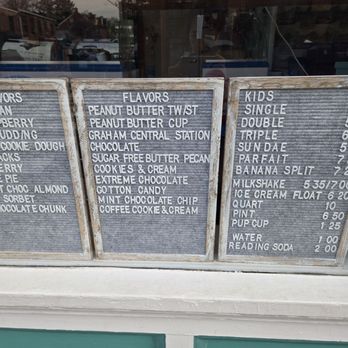 VORS
AN
PBERRY
UDDING
COOKIE DOUGH
ACKS
ERRY
E PIE
T CHOC ALMOND
SORBET
OCOLATE CHUNK
FLAVORS
PEANUT BUTTER TWIST
PEANUT BUTTER CUP
GRAHAM CENTRAL STATION
CHOCOLATE
SUGAR FREE BUTTER PECAN
COOKIES & CREAM
EXTREME CHOCOLATE
COTTON CANDY
MINT CHOCOLATE CHIP
COFFEE COOKIE & CREAM
KIDS
SINGLE
DOUBLE 5
TRIPLE 6
SUNDAE 5
PARFAIT 7
BANANA SPLIT 7.2
MILKSHAKE 5.35/7.00
ICE CREAM FLOAT 6.20
QUART 10
PINT 6.50
PUP CUP 1.25
WATER 1.00
READING SODA 2.00